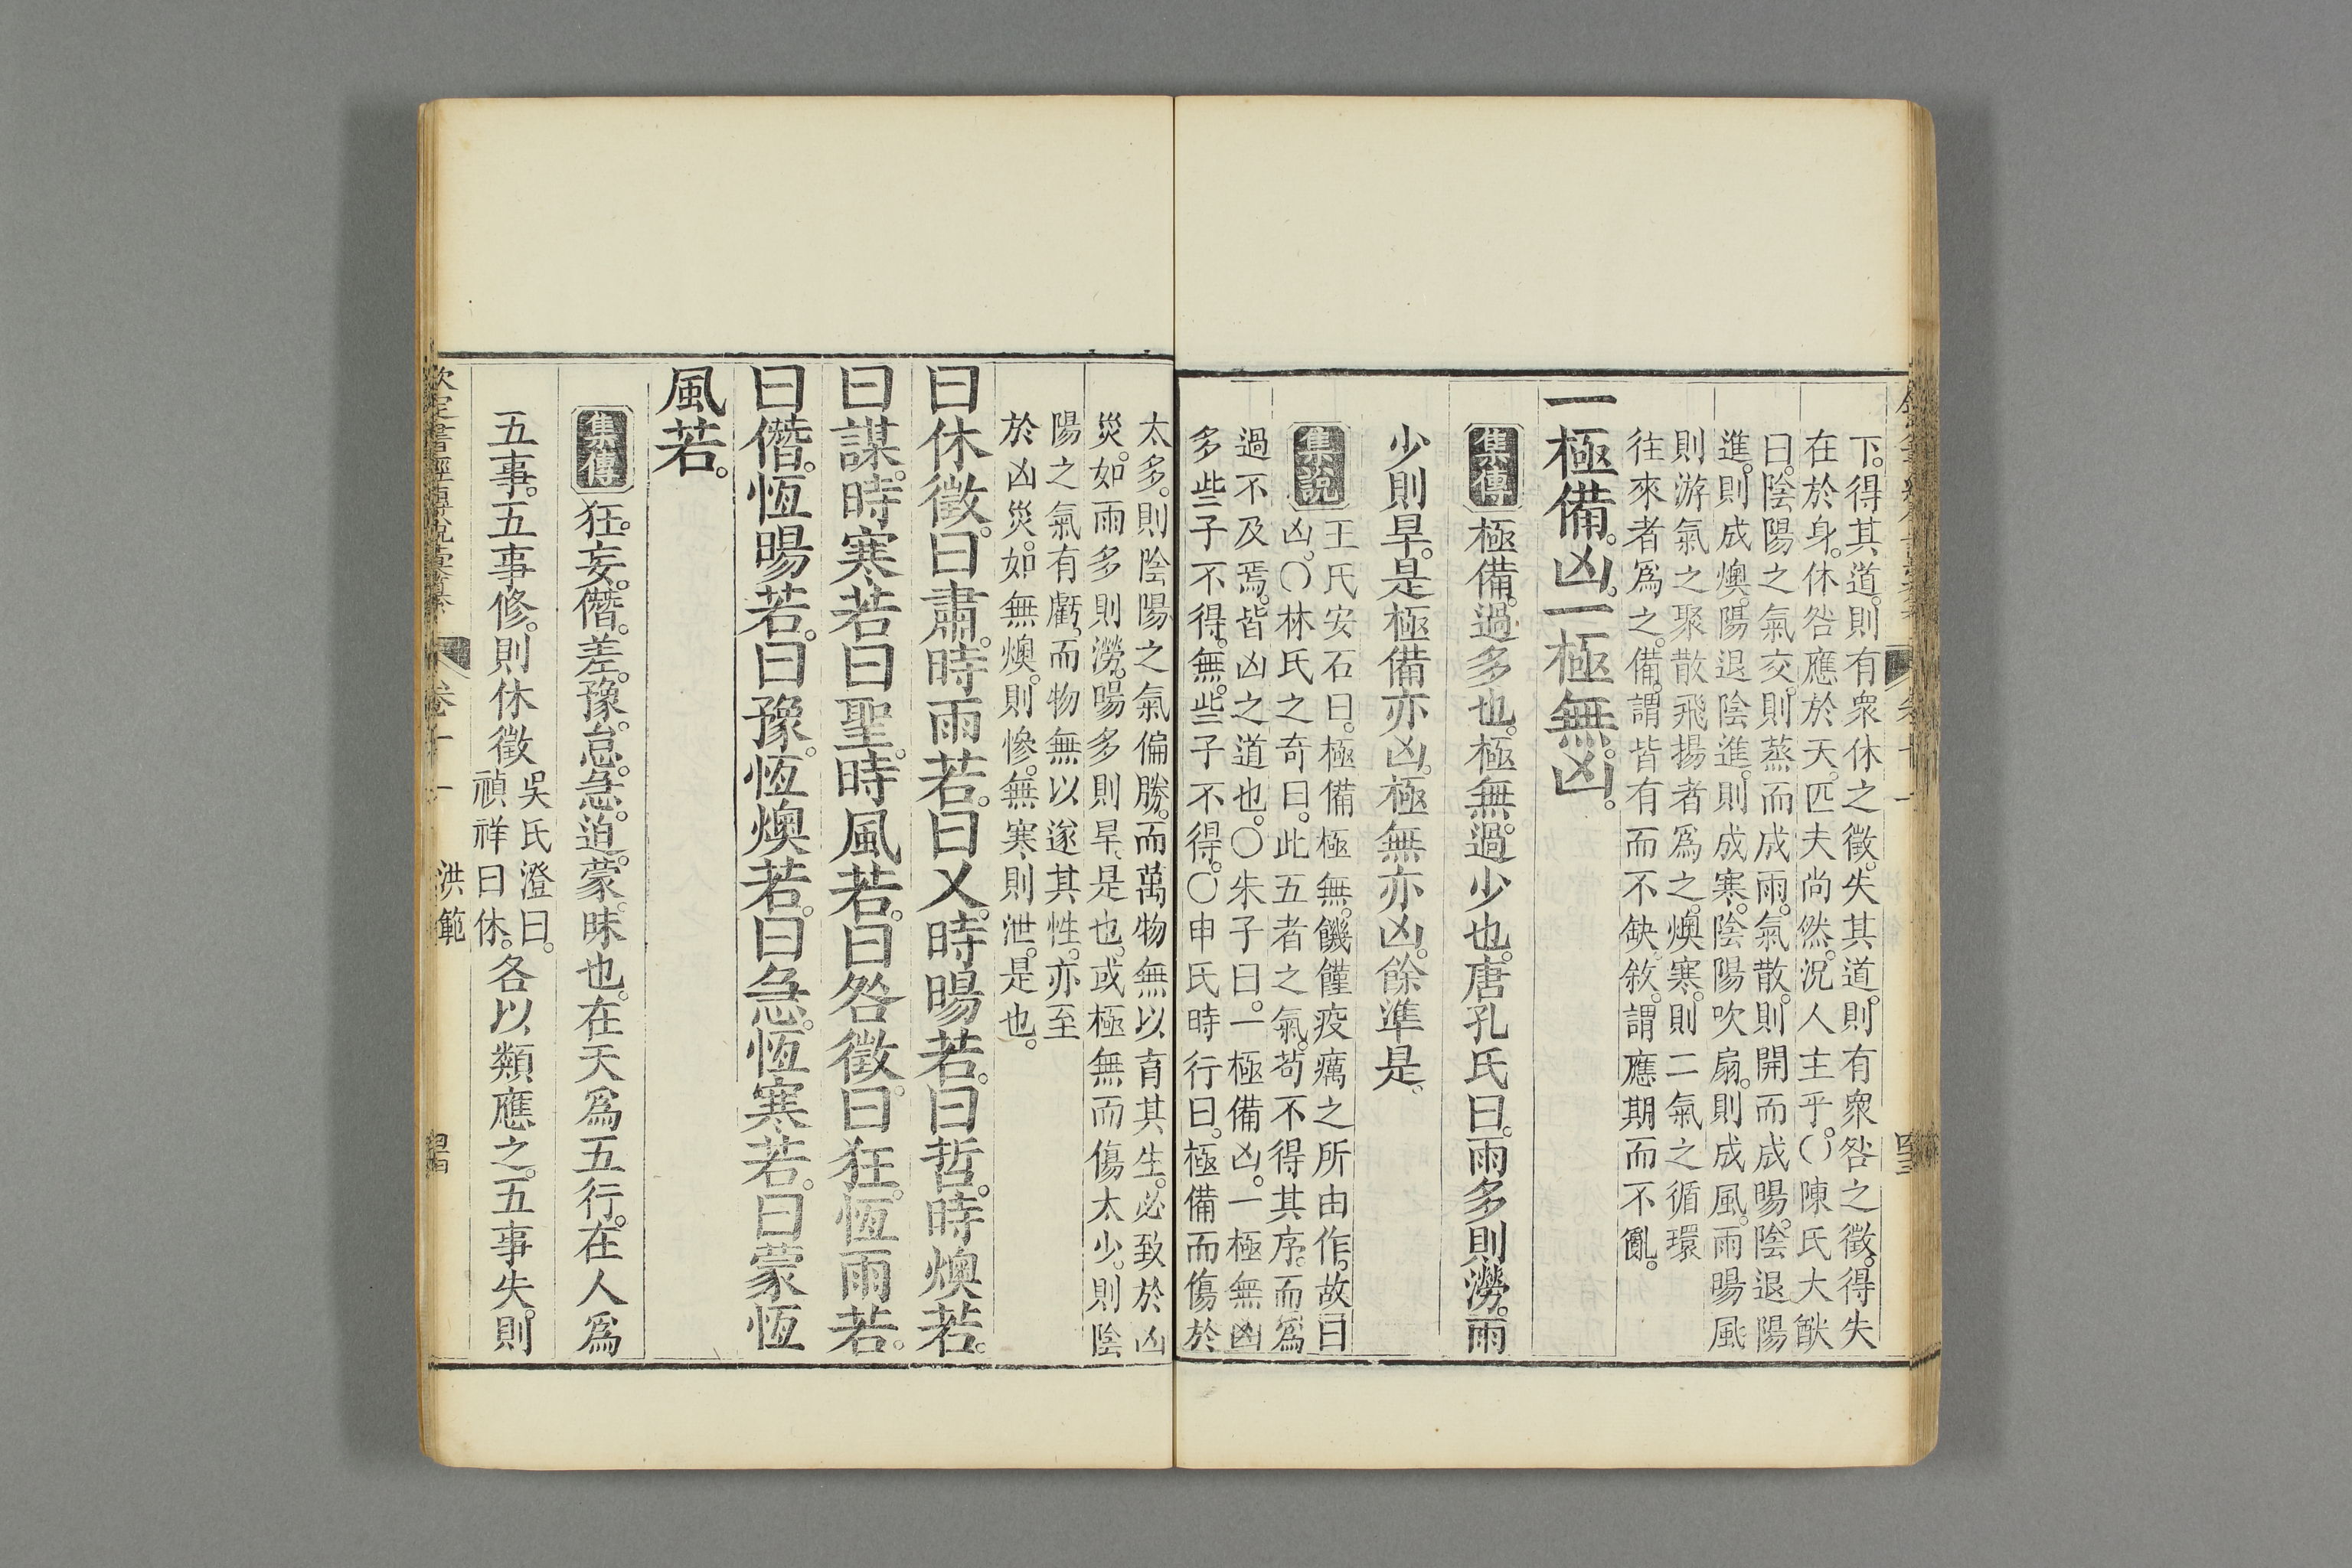 下。得其道。則有衆休之徵。失其道。則有衆咎之徵。得失
在於身。休咎應於天。匹夫尚然。況人主乎。〇陳氏大猷
曰。陰陽之氣交。則蒸而成雨。氣散。則開而成暘。陰退陽
進。則成燠。陽退陰進。則成寒。陰陽吹扇。則成風。雨暘風
則游氣之聚散飛揚者爲之。燠寒。則二氣之循環
往來者爲之。備。謂皆有而不缺。敘。謂應期而不亂。
一極備。凶。一極無。凶。
集傳 極備。過多也。極無。過少也。唐孔氏曰。雨多則澇。雨
少則旱。是極備亦凶。極無亦凶。餘準是。
集說 王氏安石曰。極備極無。饑饉疫癘之所由作。故曰
凶。〇林氏之奇曰。此五者之氣。苟不得其序。而爲
過不及焉。皆凶之道也。〇朱子曰。一極備凶。一極無凶
多些子不得。無些子不得。〇申氏時行曰。極備而傷於
太多。則陰陽之氣偏勝。而萬物無以育其生。必致於凶
災。如雨多則澇。暘多則旱。是也。或極無而傷太少。則陰
陽之氣有虧。而物無以遂其性。亦至
於凶災。如無燠。則慘。無寒。則泄。是也。
曰休徵。曰肅。時雨若。曰乂。時暘若。曰哲。時燠若。
曰謀。時寒若。曰聖。時風若。曰咎徵。曰狂。恆雨若。
曰僭。恆暘若。曰豫。恆燠若。曰急。恆寒若。曰蒙。恆
風若。
集傳 狂。妄。僭。差。豫。怠。急。迫。蒙。昧也。在天爲五行。在人爲
五事。五事修。則休徵吳氏澄曰。禎祥曰休。各以類應之。五事失。則
欽定書經傳說彙纂 卷十一 洪範